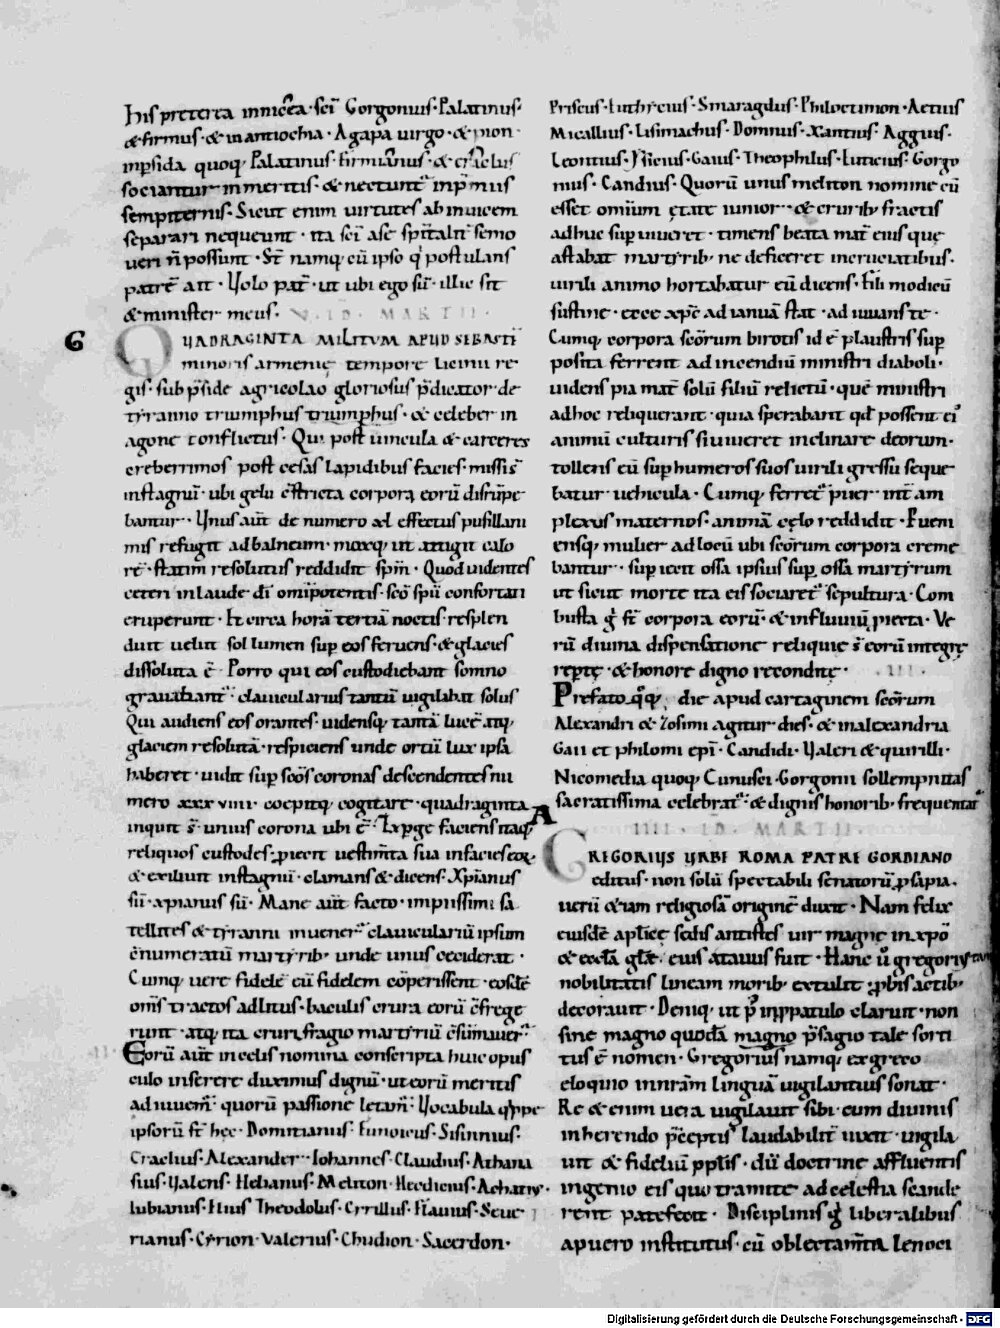 his preterea in nicea · sc̄i Gorgonius · Palatinus ·
& firmus · & in antiochia · Agapa uirgo · & pion ·
in psida quoq; Palatinus · firmianus · &
sociantur in meritis · & nectunt᷒ in p̄miis
sempiternis · Sicut enim uirtutes ab inuicem
separari nequeunt · ita sc̄i a se sp̄italit̄ semo
ueri n̄ possunt · St̄ namq; cū ipso q' postulans
patrē ait · Uolo pat̄ · ut ubi ego sū · illic sit
& minister meus · V · ID · MARTII ·
G
QUADRAGINTA MILITUM APUD SEBASTĪ
minoris armenię tempore licinii re
gis · sub p̄side agricolao gloriosus p̄dicator de
tyranno triumphus triumphus · & celeber in
agone conflictus · Qui post uincula & carceres
creberrimos post cesas lapidibus facies · missi s̄
in stagnū · ubi gelu c̄stricta corpora eorū disrūpe
bantur · Unus aūt de numero xl effectus pusillani
mis refugit ad balneum · moxq; ut attigit calo
rē · statim resolutus reddidit sp̄m · Quod uidentes
ceteri in laude dī omīpotentis · sc̄o sp̄u confortati
eruperunt · Et circa horā tertiā noctis · resplen
duit uelut sol lumen sup̄ eos feruens · & glacies
dissoluta ē · Porro qui eos custodiebant somno
grauabant᷒ · clauicularius tantū uigilabat solus
Qui audiens eos orantes · uidensq; tantā lucē atq;
glaciem resolutā · respiciens unde ortū lux ipsa
haberet · uidit sup̄ sc̄os coronas descendentes nu
mero xxxviiii · coepitq; cogitare · quadraginta
inquit s̄ · unius corona ubi ē · Expge faciens itaq;
reliquos custodes · proiecit uestim̄ta sua in facies eoꝝ ·
& exiliuit in stagnū · clamans & dicens · Xp̄ianus
sū · xpianus sū · Mane aūt facto · impiissimi sa
tellites & tyranni inuener᷒ clauiculariū ipsum
c̄numeratū martyrib; unde unus ceciderat ·
Cumq; uere fidelē cū fidelem cōperissent · eosdē
om̄s tractos ad litus · baculis crura eorū c̄frege
runt · atq; ita crurifragio martyriū c̄sūmauer᷒
Eorū aūt in celis nomina conscripta huic opus
culo inserere duximus dignū · ut eorū meritis
adiuuem᷒ · quorū passione letam᷒ · Uocabula q'ppe
ipsorū st̄ hec · Domitianus · Eunoicus · Sisinnius ·
Craclius · Alexander · Iohannes · Claudius · Athana
sius · Ualens · Helianus · Meliton · Hecdicius · Achatiꝰ ·
lubianus · Elius Theodolus · Cyrillus · Flauius · Seue
rianus · Cyrion · Valerius · Chudion · Sacerdon ·
Priscus · Euthicius · Smaragdus · Philoctimon · Aetius
Micallius · Lisimachus · Domnus · Xantius · Aggius ·
Leontius · Nicius · Gaius · Theophilus · Euticius · Gorgo
nius · Candius · Quorū unus meliton nomine cū
esset omium ętate iunior · & crurib; fractis
adhuc sup̄uiueret · timens beata mat̄ eius quę
astabat martyrib; ne deficeret in cruciatibus ·
uirili animo hortabatur eū dicens · Fili modicū
sustine · ecce xp̄c ad ianuā stat · adiuuans te ·
Cumq; corpora sc̄orum birotis id ē plaustris sup̄
posita ferrent ad incendiū ministri diaboli ·
uidens pia mat̄ solū filiū relictū · quē ministri
adhoc reliquerant · quia sperabant qd̄ possent ei'
animū culturis si uiueret inclinare deorum ·
tollens eū sup̄ humeros suos uirili gressu seque
batur uehicula · Cumq; ferret᷒ puer · int̄ am
plexus maternos · animā cęlo reddidit · Pueni
ensq; mulier ad locū ubi sc̄orum corpora creme
bantur · sup̄iecit ossa ipsius sup̄ ossa martyrum
ut sicut morte ita eis sociaret᷒ sepultura · Com
busta g' st̄ corpora eorū · & in fluuiū piecta · Ue
rū diuina dispensatione reliquię s̄ eorū integrę
reptę · & honore digno reconditę · III ·
Prefato q'q; die apud cartaginem sc̄orum
Alexandri & Zosimi agitur dies · & in alexandria
Gaii et philomi ep̄i · Candidi · Ualeri & quirilli ·
Nicomedia quoq; Cunusci · Gorgonii sollempnitas
sacratissima celebrat᷒ · & dignis honorib; frequentat᷒
A
IIII · ID · MARTII ·
GREGORIUS URBI ROMA PATRE GORDIANO
editus · non solū spectabili senatorū psapia ·
uerū etiam religiosā originē duxit · Nam felix
eiusdē aplicę sedis antistes uir magnę in xpō
& eccla glę · eius atauus fuit · Hanc u' gregoriꝰ tam
nobilitatis lineam morib; extulit · pbis actib;
decorauit · Deniq; ut p' in ppatulo claruit · non
sine magno quodā magno p̄sagio tale sorti
tus ē nomen · Gregorius namq; ex greco
eloquio in nr̄am linguā uigilantius sonat ·
Re & enim uera uigilauit sibi · cum diuinis
inherendo p̄ceptis laudabilit̄ uixit · uigila
uit & fidelium pplis · dū doctrine affluentis
ingenio eis quo tramite ad celestia scande
rent patefecit · Disciplinis g' liberalibus
a puero institutus · cū oblectam̄ta lenoci
Digitalisierung gefördert durch die Deutsche Forschungsgemeinschaft - DFG